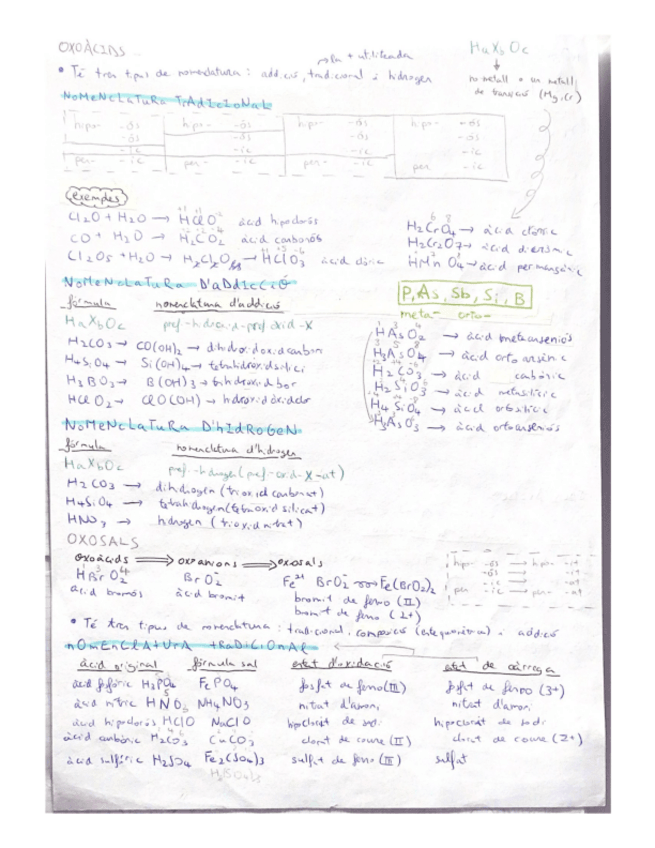 OXOÀCIDS
HaXbOc
→ la + utilitzada
• Té tres tipus de nomenclatura: addició, tradicional i hidrogen
no metall o un metall
de transició (Mg, Cr)
NOMENCLATURA TRADICIONAL
hipo- -ós hipo- -ós hipo- -ós hipo- -ós
-ós -ós -ós
-ic -ic -ic -ic
per- -ic per- -ic per- -ic
exemples
Cl2O + H2O → HClO àcid hipoclorós
CO + H2O → H2CO2 àcid carbonós
Cl2O5 + H2O → H2Cl2O6 → HClO3 àcid clòric
H2CrO4 → àcid cròmic
H2Cr2O7 → àcid dicròmic
HMnO4 → àcid permangànic
NOMENCLATURA D'ADDICIÓ
fórmula nomenclatura d'addició
HaXbOc pref-hidroxid-pref oxid-X
H2CO3 → CO(OH)2 → dihidroxidoxidcarboni
H4SiO4 → Si(OH)4 → tetrahidroxidsilici
H3BO3 → B(OH)3 → trihidroxidbor
HClO2 → ClO(OH) → hidroxidoxidclor
P, As, Sb, Si, B
meta- orto-
HAsO2 → àcid metaarseniós
H3AsO4 → àcid orto arsènic
H2CO3 → àcid carbònic
H2SiO3 → àcid metasilícic
H4SiO4 → àcid ortosilícic
H3AsO3 → àcid ortoarseniós
NOMENCLATURA D'HIDROGEN
fórmula nomenclatura d'hidrogen
HaXbOc pref-hidrogen(pref-oxid-X-at)
H2CO3 → dihidrogen(trioxidcarbonat)
H4SiO4 → tetrahidrogen(tetraoxidsilicat)
HNO3 → hidrogen (trioxidnitrat)
OXOSALS
oxoàcids ⟹ oxoanions ⟹ oxosals
HBrO2 BrO2- Fe2+ BrO2- → Fe(BrO2)2
àcid bromós àcid bromit bromit de ferro (II)
bromit de ferro (2+)
hipo- -ós → hipo- -it
-ós → -it
-ic → -at
per- -ic → per- -at
• Té tres tipus de nomenclatura: tradicional, composició (estequiomètrica) i addició
NOMENCLATURA TRADICIONAL
àcid original fórmula sal estat d'oxidació estat de càrrega
àcid fosfòric H3PO4 FePO4 fosfat de ferro(III) fosfat de ferro (3+)
àcid nítric HNO3 NH4NO3 nitrat d'amoni nitrat d'amoni
àcid hipoclorós HClO NaClO hipoclorit de sodi hipoclorit de sodi
àcid carbònic H2CO3 CuCO3 clorat de coure (II) clorat de coure (2+)
àcid sulfúric H2SO4 Fe2(SO4)3 sulfat de ferro (III) sulfat